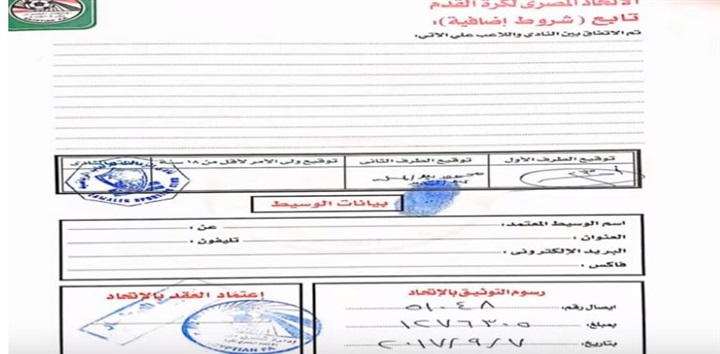 الاتحاد المصرى لكرة القدم
تابع (شروط إضافية):
تم الاتفاق بين النادى واللاعب على الاتى:
توقيع الطرف الأول
توقيع الطرف الثانى
توقيع ولى الامر لأقل من ١٨ سنة
ZAMALEK SPORTING CLUB
بيانات الوسيط
اسم الوسيط المعتمد:
عن:
العنوان:
تليفون:
البريد الإلكترونى:
فاكس:
رسوم التوثيق بالاتحاد
ايصال رقم: ٥١٠٤٨
بمبلغ: ١٢٧٦٣٠٥
بتاريخ: ٢٠١٧/٩/٧
إعتماد العقد بالاتحاد